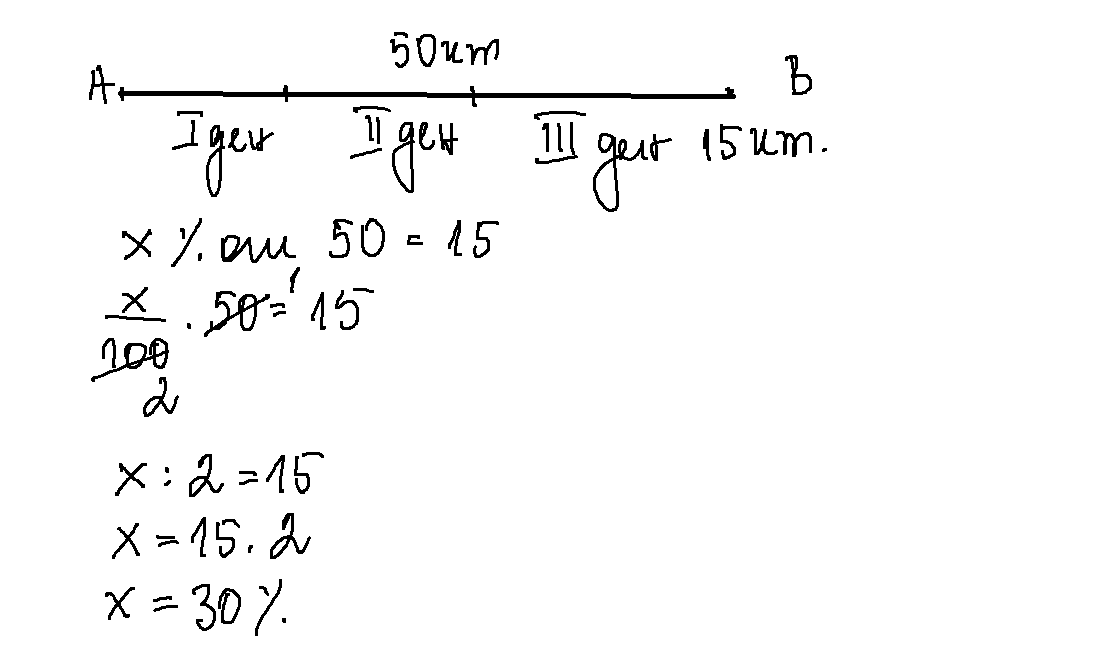 50 км
A B
I ден II ден III ден 15 км.
x % от 50 = 15
x/100 . 50 = 15
1
2
x : 2 = 15
x = 15 . 2
x = 30 %